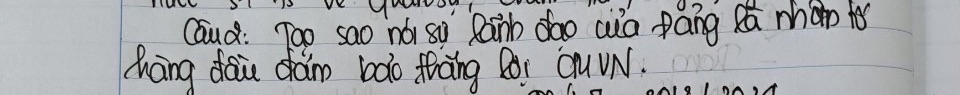 Câu2: Tạo sao nói sự lãnh đạo của Đảng là nhân tố
hàng đầu đảm bảo thắng lợi CMVN.